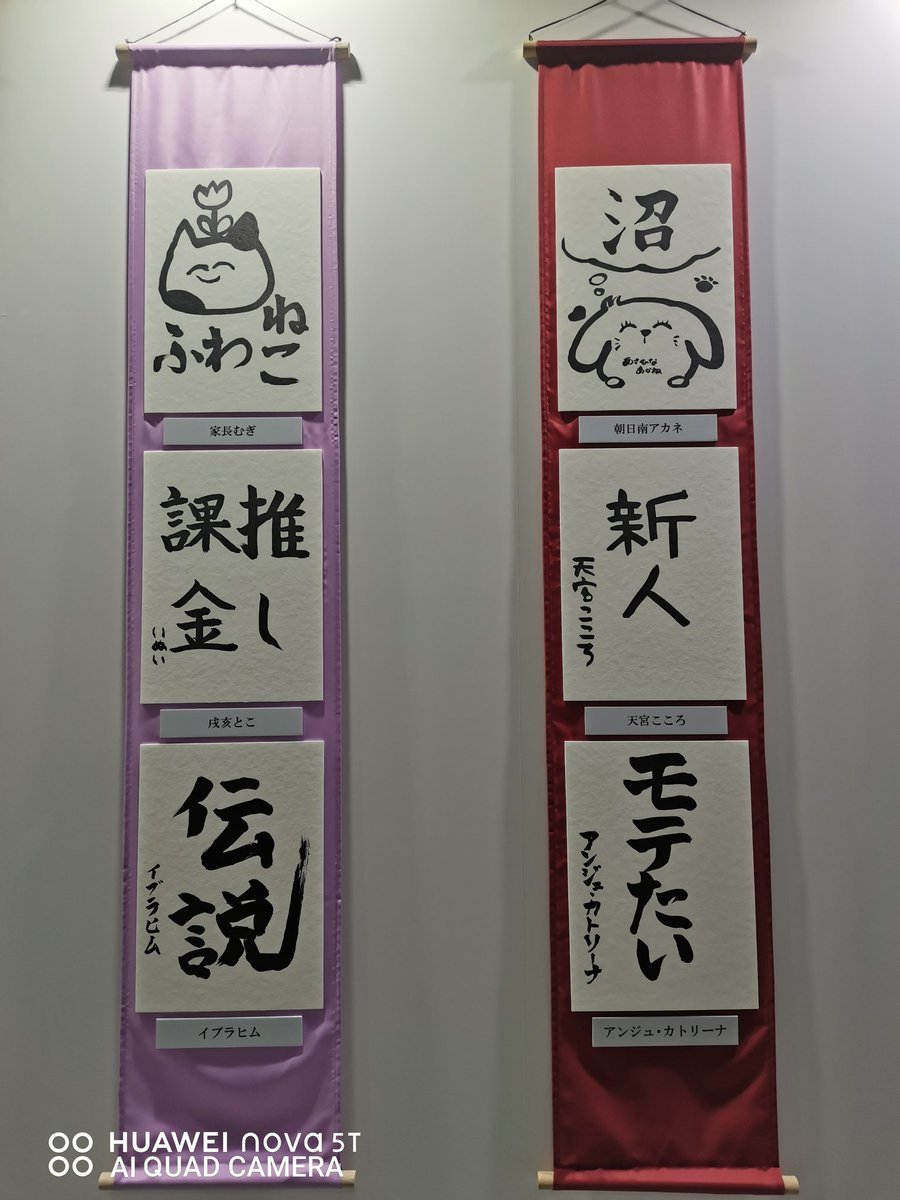 ふわねこ
家長むぎ
推し
課金
いぬい
戌亥とこ
伝説
イブラヒム
イブラヒム
沼
あさひな
あかね
朝日南アカネ
新人
天宮こころ
天宮こころ
モテたい
アンジュ・カトリーナ
アンジュ・カトリーナ
HUAWEI nova 5T
AI QUAD CAMERA